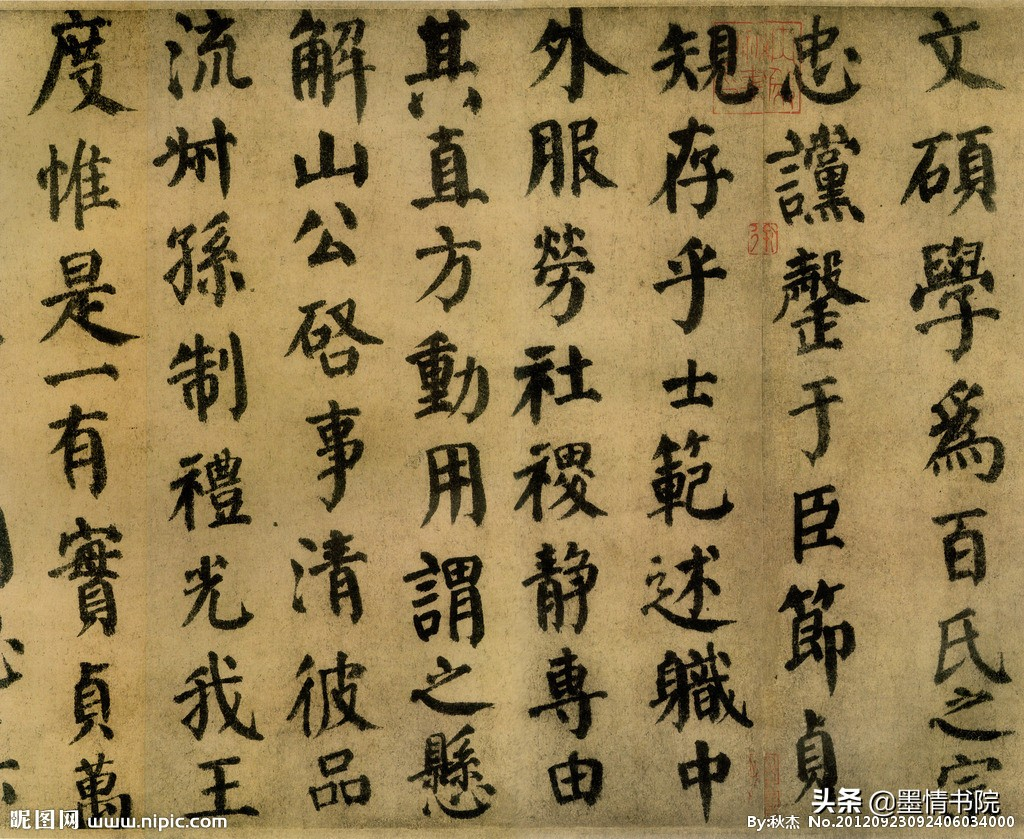 文碩學爲百氏之宗
忠讜罄于臣節貞
規存乎士範述職中
外服勞社稷静專由
其直方動用謂之懸
解山公啓事清彼品
流叔孫制禮光我王
度惟是一有實貞萬
头条 @墨情书院
昵图网 www.nipic.com
By:秋杰 No.20120923092406034000